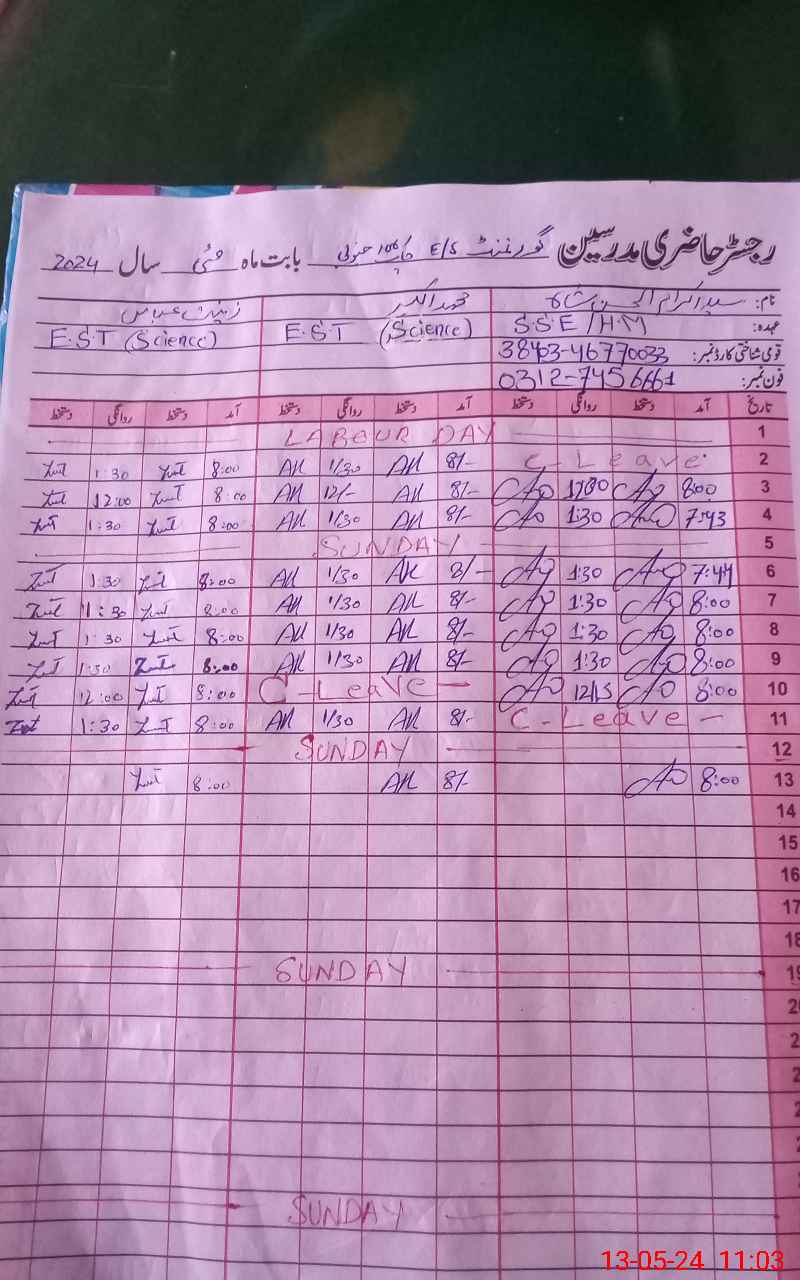 رجسٹر حاضری مدرسین گورنمنٹ E/S 106 جنوبی بابت ماہ مئی سال 2024
نام: سید اکرام الحسن شاہ محمد اکبر زینت عباس
عہدہ: SSE/HM E.S.T (Science) E.S.T (Science)
قومی شناختی کارڈ نمبر: 38403-46770033
فون نمبر: 0312-7456661
تاریخ آمد دستخط روانگی دستخط آمد دستخط روانگی دستخط آمد دستخط روانگی دستخط
1 LABOUR DAY
2 C-Leave 8/- AK 1/30 AK 8:00 1:30
3 8:00 8/- AK 12/- AK 8:00 12:00
4 7:43 1:30 8/- AK 1/30 AK 8:00 1:30
5 SUNDAY
6 7:44 1:30 8/- AK 1/30 AK 8:00 1:30
7 8:00 1:30 8/- AK 1/30 AK 8:00 1:30
8 8:00 1:30 8/- AK 1/30 AK 8:00 1:30
9 8:00 1:30 8/- AK 1/30 AK 8:00 1:30
10 8:00 12/15 C-Leave 8:00 12:00
11 C-Leave 8/- AK 1/30 AK 8:00 1:30
12 SUNDAY
13 8:00 8/- AK 8:00
14
15
16
17
18
19 SUNDAY
SUNDAY
13-05-24 11:03